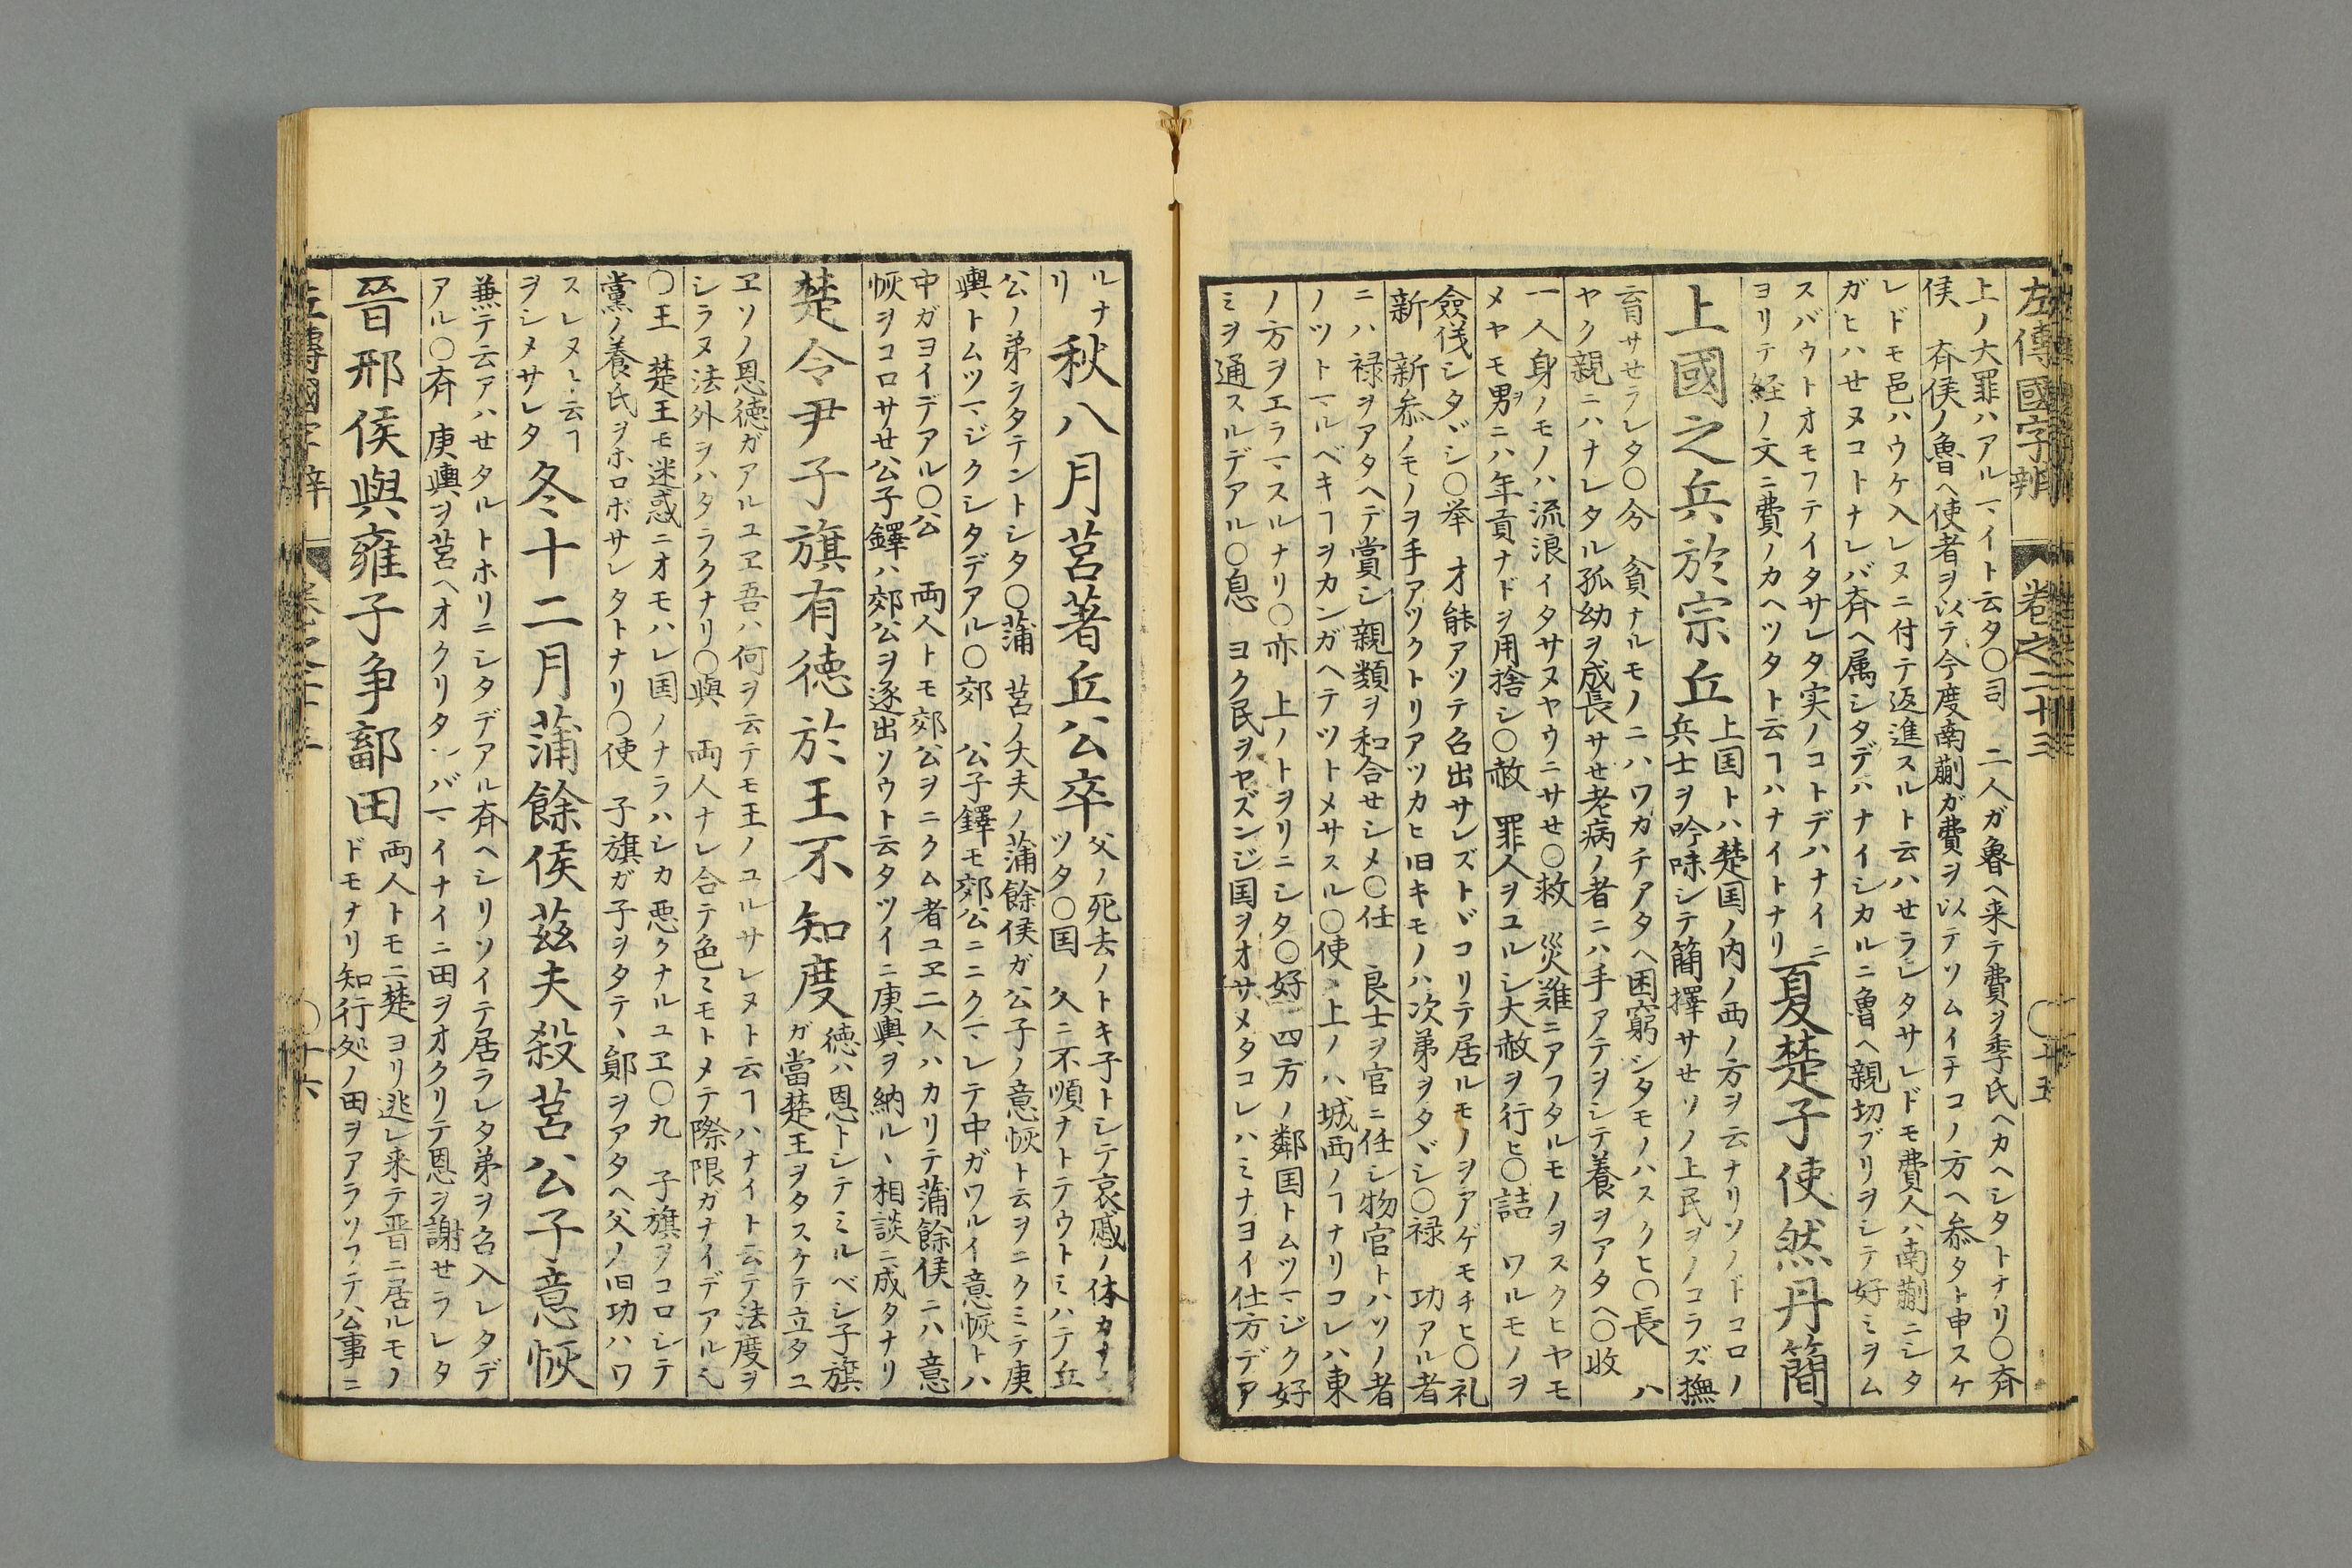 左傳國字辨 卷之二十三 〇十五
上ノ大罪ハアルマイト云タ〇司 二人ガ魯ヘ来テ費ヲ季氏ヘカヘシタトナリ〇斉
侯 斉侯ノ魯ヘ使者ヲ以テ今度南蒯ガ費ヲ以テソムイテコノ方ヘ参タト申スケ
レドモ邑ハウケ入レヌニ付テ返進スルト云ハせラレタサレドモ費人ハ南蒯ニシタ
ガヒハせヌコトナレバ斉ヘ属シタデハナイシカルニ魯ヘ親切ブリヲシテ好ミヲム
スバウトオモフテイタサレタ実ノコトデハナイニ
ヨリテ経ノ文ニ費ノカヘツタト云ヿハナイトナリ
夏楚子使然丹簡
上國之兵於宗丘
上国トハ楚国ノ内ノ西ノ方ヲ云ナリソノドコロノ
兵士ヲ吟味シテ簡擇サせソノ上民ヲノコラズ撫
育サせラレタ〇分 貧ナルモノニハワカテアタヘ困窮シタモノハスクヒ〇長 ハ
ヤク親ニハナレタル孤幼ヲ成長サせ老病ノ者ニハ手アテヲシテ養ヲアタヘ〇收
一人身ノモノハ流浪イタサヌヤウニサせ〇救 災難ニアフタルモノヲスクヒヤモ
メヤモ男ヲニハ年貢ナドヲ用捨シ〇赦 罪人ヲユルシ大赦ヲ行ヒ〇詰 ワルモノヲ
僉伐シタヾシ〇举 才能アツテ召出サレズトヾコリテ居ルモノヲアゲモチヒ〇礼
新 新参ノモノヲ手アツクトリアツカヒ旧キモノハ次第ヲタヾシ〇禄 功アル者
ニハ禄ヲアタヘテ賞シ親類ヲ和合せシメ〇任 良士ヲ官ニ任シ物官トハソノ者
ノツトマルベキヿヲカンガヘテツトメサスル〇使 上ノハ城西ノヿナリコレハ東
ノ方ヲエラマスルナリ〇亦 上ノトヲリニシタ〇好 四方ノ鄰国トムツマジク好
ミヲ通スルデアル〇息 ヨク民ヲヤズンジ国ヲオサメタコレハミナヨイ仕方デア
ルナ
リ
秋八月莒著丘公卒
父ノ死去ノトキ子トシテ哀慼ノ体カナ
ツタ〇国 久ニ不順ナトテウトミハテ丘
公ノ弟ヲタテントシタ〇蒲 莒ノ大夫ノ蒲餘侯ガ公子ノ意恢ト云ヲニクミテ庚
輿トムツマジクシタデアル〇郊 公子鐸モ郊公ニニクマレテ中ガワルイ意恢トハ
中ガヨイデアル〇公 両人トモ郊公ヲニクム者ユヱ二人ハカリテ蒲餘侯ニハ意
恢ヲコロサせ公子鐸ハ郊公ヲ逐出ソウト云タツイニ庚輿ヲ納ルヽ相談ニ成タナリ
楚令尹子旗有徳於王不知度
徳ハ恩トシテミルベシ子旗
ガ當楚王ヲタスケテ立タユ
ヱソノ恩徳ガアルユヱ吾ハ何ヲ云テモ王ノユルサレヌト云ヿハナイト云テ法度ヲ
シラヌ法外ヲハタラクナリ〇與 両人ナレ合テ色ミモトメテ際限ガナイデアル也
〇王 楚王モ迷惑ニオモハレ国ノナラハシカ悪クナルユヱ〇九 子旗ヲコロシテ
黨ノ養氏ヲホロボサレタトナリ〇使 子旗ガ子ヲタテヽ鄖ヲアタヘ父ノ旧功ハワ
スレヌト云ヿ
ヲシメサレタ
冬十二月蒲餘侯茲夫殺莒公子意恢
兼テ云アハせタルトホリニシタデアル斉ヘシリソイテ居ラレタ弟ヲ召入レタデ
アル〇斉 庚輿ヲ莒ヘオクリタレバマイナイニ田ヲオクリテ恩ヲ謝せラレタ
晉邢侯與雍子争鄐田
両人トモニ楚ヨリ逃レ来テ晋ニ居ルモノ
ドモナリ知行処ノ田ヲアラソフテ公事ニ
左傳國字辨 〇十六